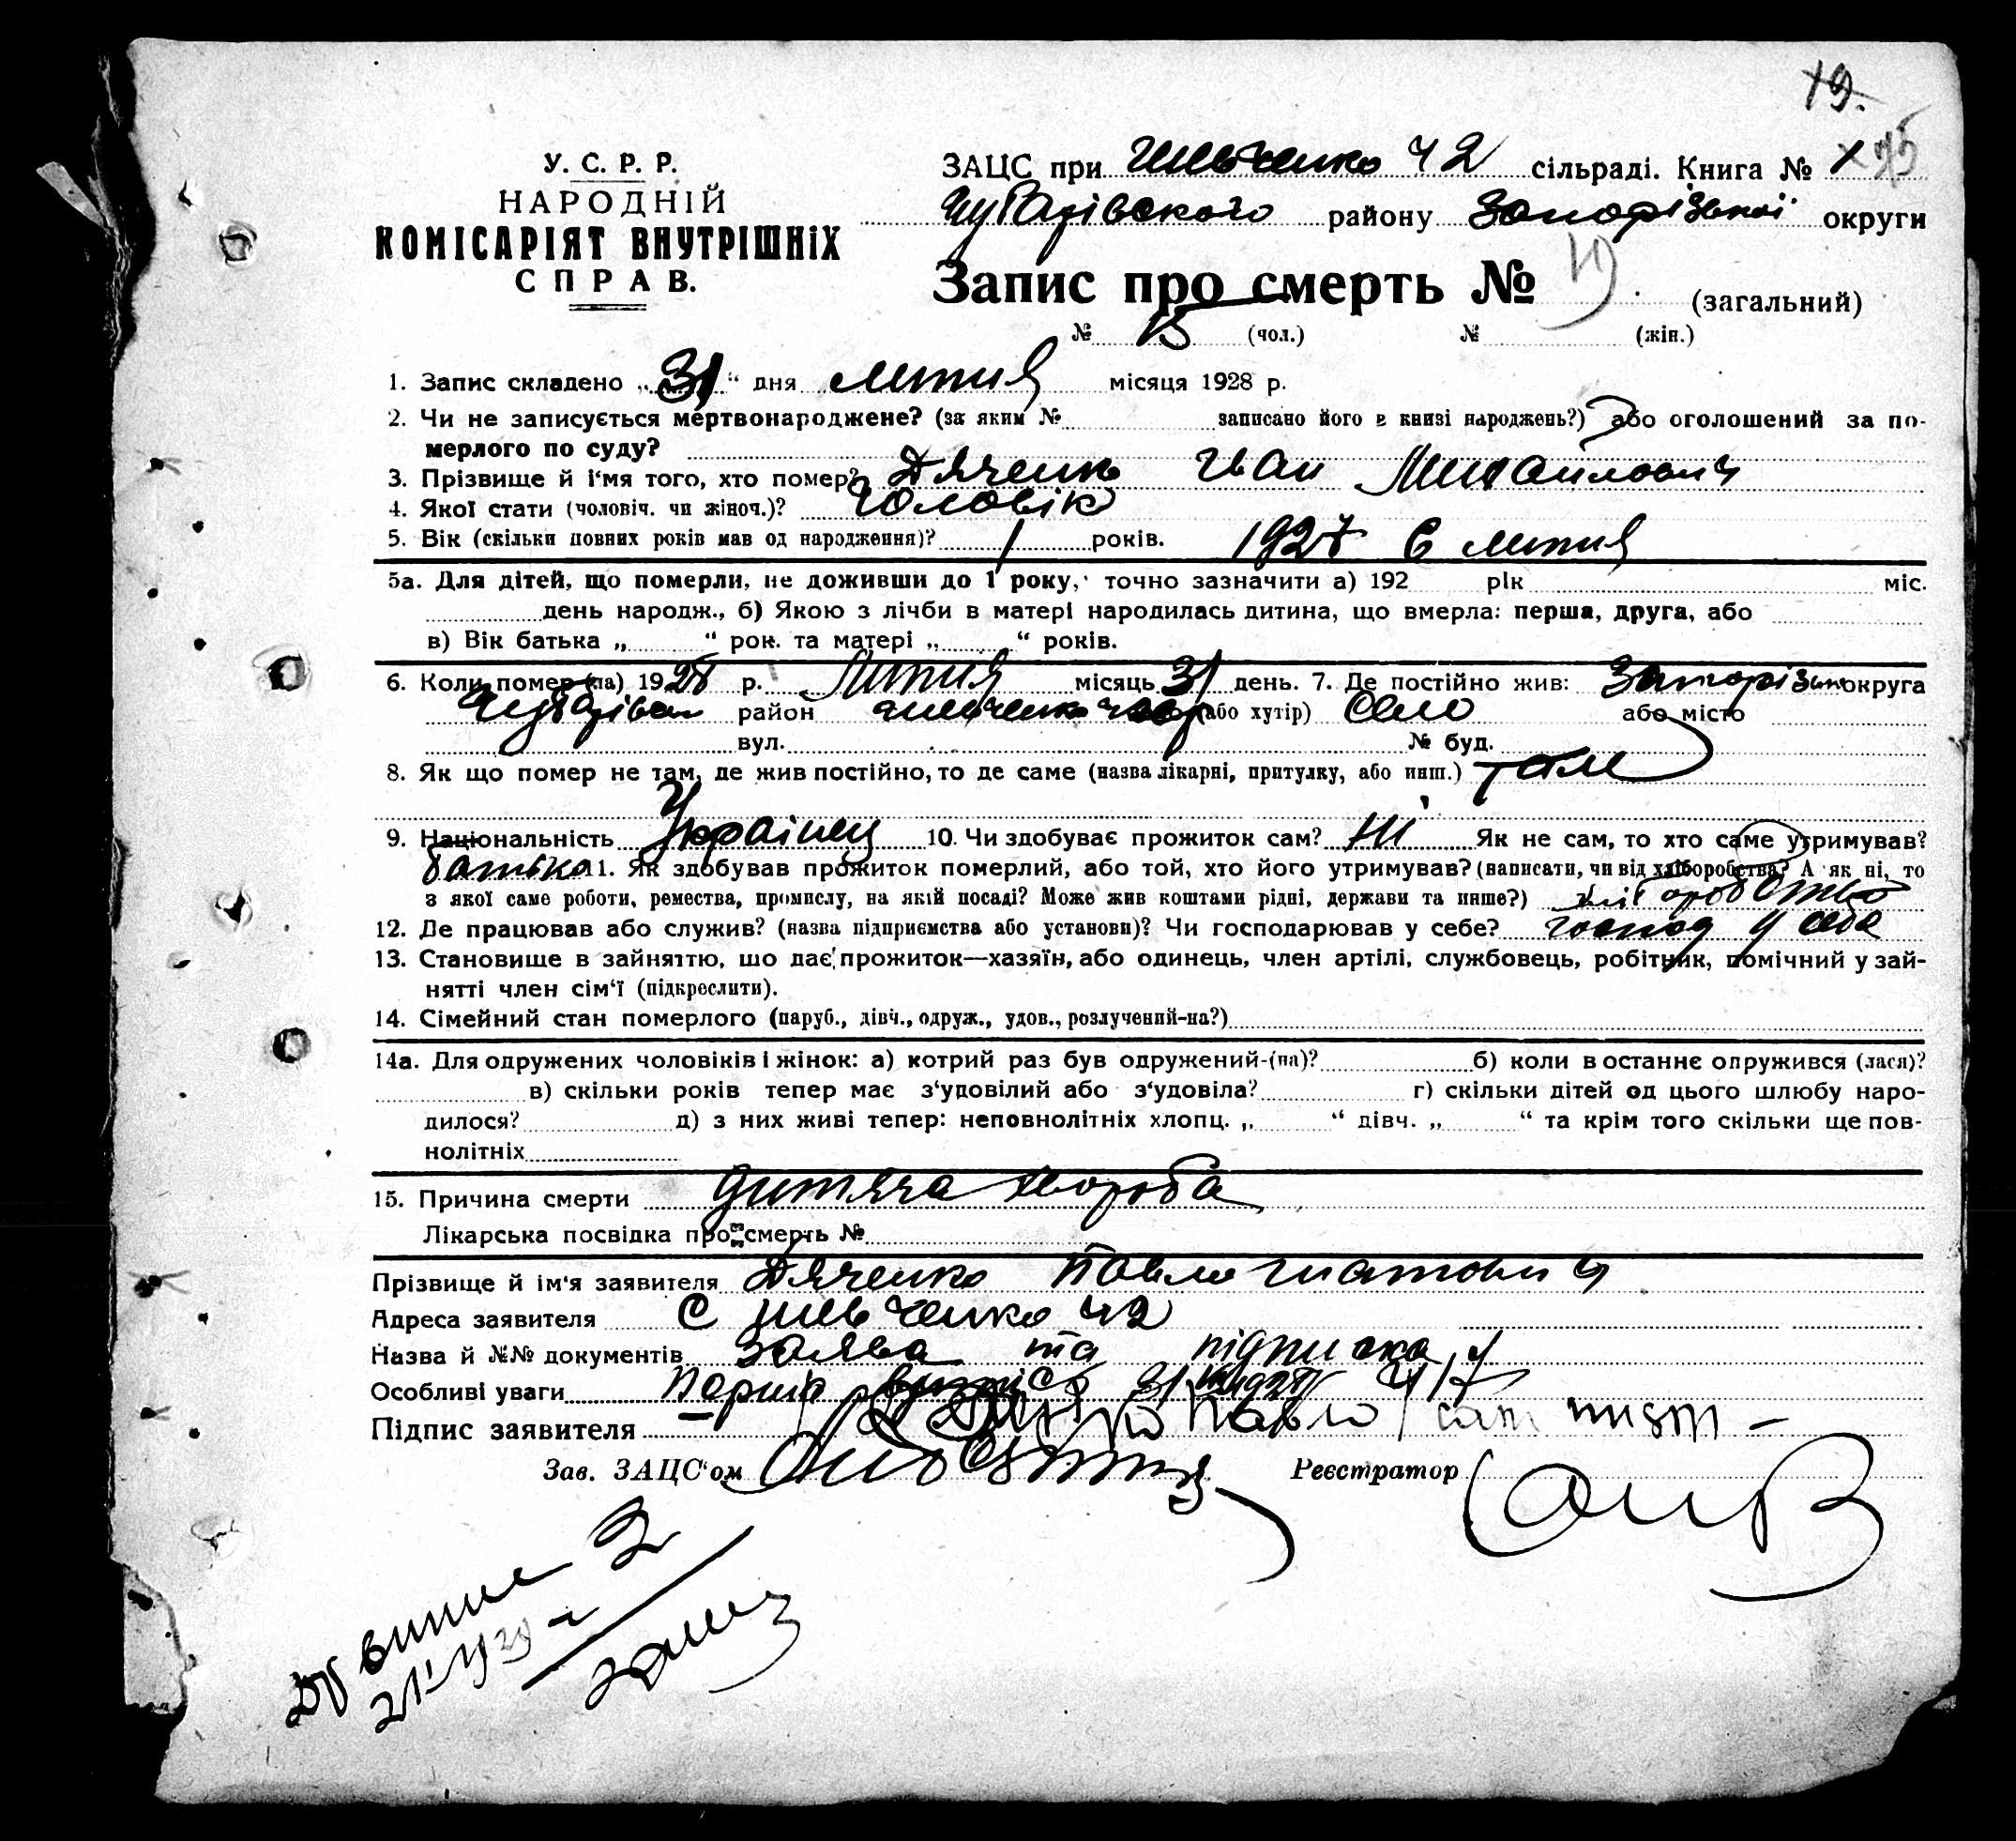 19.
У. С. Р. Р.
НАРОДНІЙ
КОМІСАРІЯТ ВНУТРІШНІХ
СПРАВ.
ЗАЦС при Шевченко ч 2 сільраді. Книга №
Чубарівского району Запорізької округи
Запис про смерть № 19 (загальний)
№ 13 (чол.) № (жін.)
1. Запис складено „ 31 “ дня липня місяця 1928 р.
2. Чи не записується мертвонароджене? (за яким № записано його в книзі народжень?) або оголошений за по-
мерлого по суду?
3. Прізвище й і‘мя того, хто помер? Дяченко Іван Михайлович
4. Якої стати (чоловіч. чи жіноч.)? Чоловік
5. Вік (скільки повних років мав од народження)? 1 років. 1927 6 липня
5а. Для дітей, що померли, не доживши до 1 року, точно зазначити а) 192 рік міс.
день народж., б) Якою з лічби в матері народилась дитина, що вмерла: перша, друга, або
в) Вік батька „ “ рок. та матері „ “ років.
6. Коли помер (ла) 1928 р. Липня місяць 31 день. 7. Де постійно жив: Запорізька округа
Чубарівськ район Шевченко ч (або хутір) село або місто
вул. № буд.
8. Як що помер не там, де жив постійно, то де саме (назва лікарні, притулку, або инш.) там
9. Національність Українец 10. Чи здобуває прожиток сам? Ні Як не сам, то хто саме утримував?
батько 11. Як здобував прожиток померлий, або той, хто його утримував? (написати, чи від хліборобства? А як ні, то
з якої саме роботи, ремества, промислу, на якій посаді? Може жив коштами рідні, держави та инше?) хліборобство
12. Де працював або служив? (назва підприємства або установи)? Чи господарював у себе? господ у себе
13. Становище в зайняттю, що дає прожиток—хазяїн, або одинець, член артілі, службовець, робітник, помічний у зай-
нятті член сім‘ї (підкреслити).
14. Сімейний стан померлого (паруб., дівч., одруж., удов., розлучений-на?)
14а. Для одружених чоловіків і жінок: а) котрий раз був одружений-(на)? б) коли в останнє одружився (лася)?
в) скільки років тепер має з‘удовілий або з‘удовіла? г) скільки дітей од цього шлюбу наро-
дилося? д) з них живі тепер: неповнолітніх хлопц. „ “ дівч. „ “ та крім того скільки ще пов-
нолітніх
15. Причина смерти Дитяча хвороба
Лікарська посвідка про смерть №
Прізвище й ім‘я заявителя Дяченко Павло Гнатович
Адреса заявителя С Шевченко ч 2
Назва й №№ документів заява та підписка
Особливі уваги
Підпис заявителя Павло
Зав. ЗАЦС‘ом Реєстратор